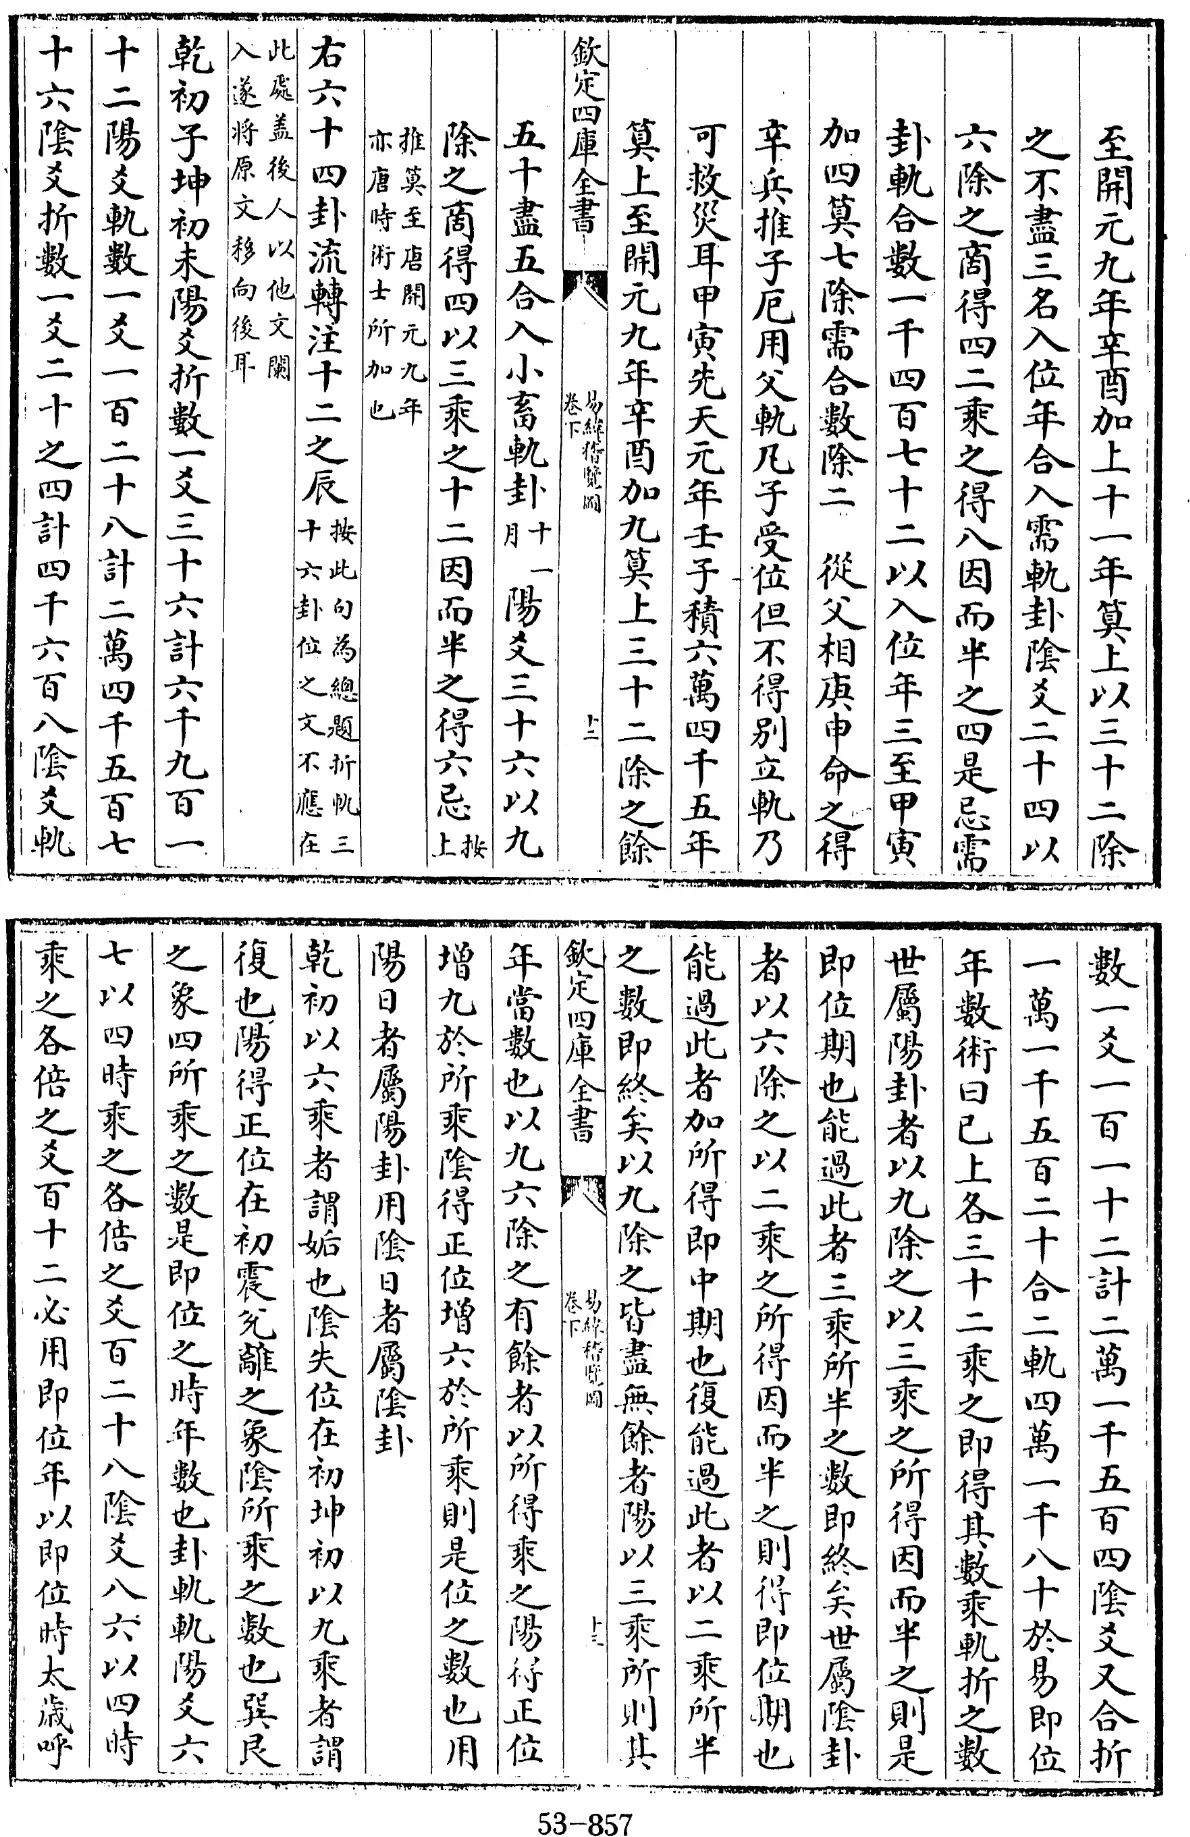 至開元九年辛酉加上十一年筭上以三十二除
之不盡三名入位年合入需軌卦陰爻二十四以
六除之商得四二乘之得八因而半之四是忌需
卦軌合數一千四百七十二以入位年三至甲寅
加四筭七除需合數除二 從父相庚申命之得
辛兵推子厄用父軌凡子受位但不得別立軌乃
可救災耳甲寅先天元年壬子積六萬四千五年
筭上至開元九年辛酉加九筭上三十二除之餘
欽定四庫全書
易緯稽覽圖
卷下
十二
五十盡五合入小畜軌卦十一
月
陽爻三十六以九
除之商得四以三乘之十二因而半之得六忌按
上
推筭至唐開元九年
亦唐時術士所加也
右六十四卦流轉注十二之辰按此句為總題折軌三
十六卦位之文不應在
此處盖後人以他文闌
入遂將原文移向後耳
乾初子坤初未陽爻折數一爻三十六計六千九百一
十二陽爻軌數一爻一百二十八計二萬四千五百七
十六陰爻折數一爻二十之四計四千六百八陰爻軌
數一爻一百一十二計二萬一千五百四陰爻又合折
一萬一千五百二十合二軌四萬一千八十於易即位
年數術曰已上各三十二乘之即得其數乘軌折之數
世屬陽卦者以九除之以三乘之所得因而半之則是
即位期也能過此者三乘所半之數即終矣世屬陰卦
者以六除之以二乘之所得因而半之則得即位期也
能過此者加所得即中期也復能過此者以二乘所半
之數即終矣以九除之皆盡無餘者陽以三乘所則其
欽定四庫全書
易緯稽覽圖
卷下
十三
年當數也以九六除之有餘者以所得乘之陽得正位
增九於所乘陰得正位增六於所乘則是位之數也用
陽日者屬陽卦用陰日者屬陰卦
乾初以六乘者謂姤也陰失位在初坤初以九乘者謂
復也陽得正位在初震兊離之象陰所乘之數也巽艮
之象四所乘之數是即位之時年數也卦軌軌陽爻六
七以四時乘之各倍之爻百二十八陰爻八六以四時
乘之各倍之爻百十二必用即位年以即位時太歲呼
53-857